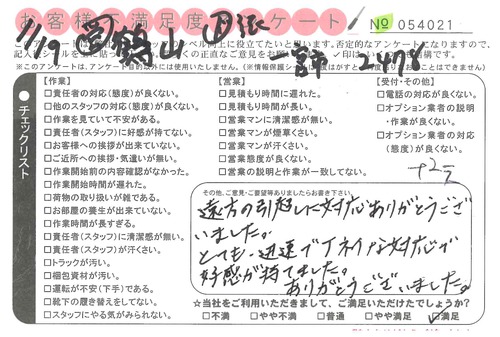 お客様不満足度アンケート!
No 054021
7/19
2478
※このアンケートは、アンケート目的以外には使用いたしません。
チェックリスト
【作業】
□責任者の対応(態度)が良くない。
□他のスタッフの対応(態度)が良くない。
□作業を見ていて不安がある。
□責任者(スタッフ)に好感が持てない。
□お客様への挨拶が出来ていない。
□ご近所への挨拶・気遣いが無い。
□作業開始前の内容確認がなかった。
□作業開始時間が遅れた。
□荷物の取り扱いが雑である。
□お部屋の養生が出来ていない。
□作業時間が長すぎる。
□責任者(スタッフ)に清潔感が無い。
□責任者(スタッフ)が汗くさい。
□トラックが汚い。
□梱包資材が汚い。
□運転が不安(下手)である。
□靴下の履き替えをしてない。
□スタッフにやる気がみられない。
【営業】
□見積もり時間に遅れた。
□見積もり時間が長い。
□営業マンに清潔感が無い。
□営業マンが煙草くさい。
□営業マンが汗くさい。
□営業態度が良くない。
□営業の説明と作業が一致してない。
【受付・その他】
□電話の対応が良くない。
□オプション業者の説明
・作業が良くない。
□オプション業者の対応
(態度)が良くない。
その他、ご意見・ご要望等ありましたらお書き下さい。
遠方の引越しに対応ありがとうござ
いました。
とても迅速で丁ネイな対応で
好感が持てました。
ありがとうございました。
☆当社をご利用いただきまして、ご満足いただけたでしょうか?
□不満 □やや不満 □普通 □やや満足 ☑満足